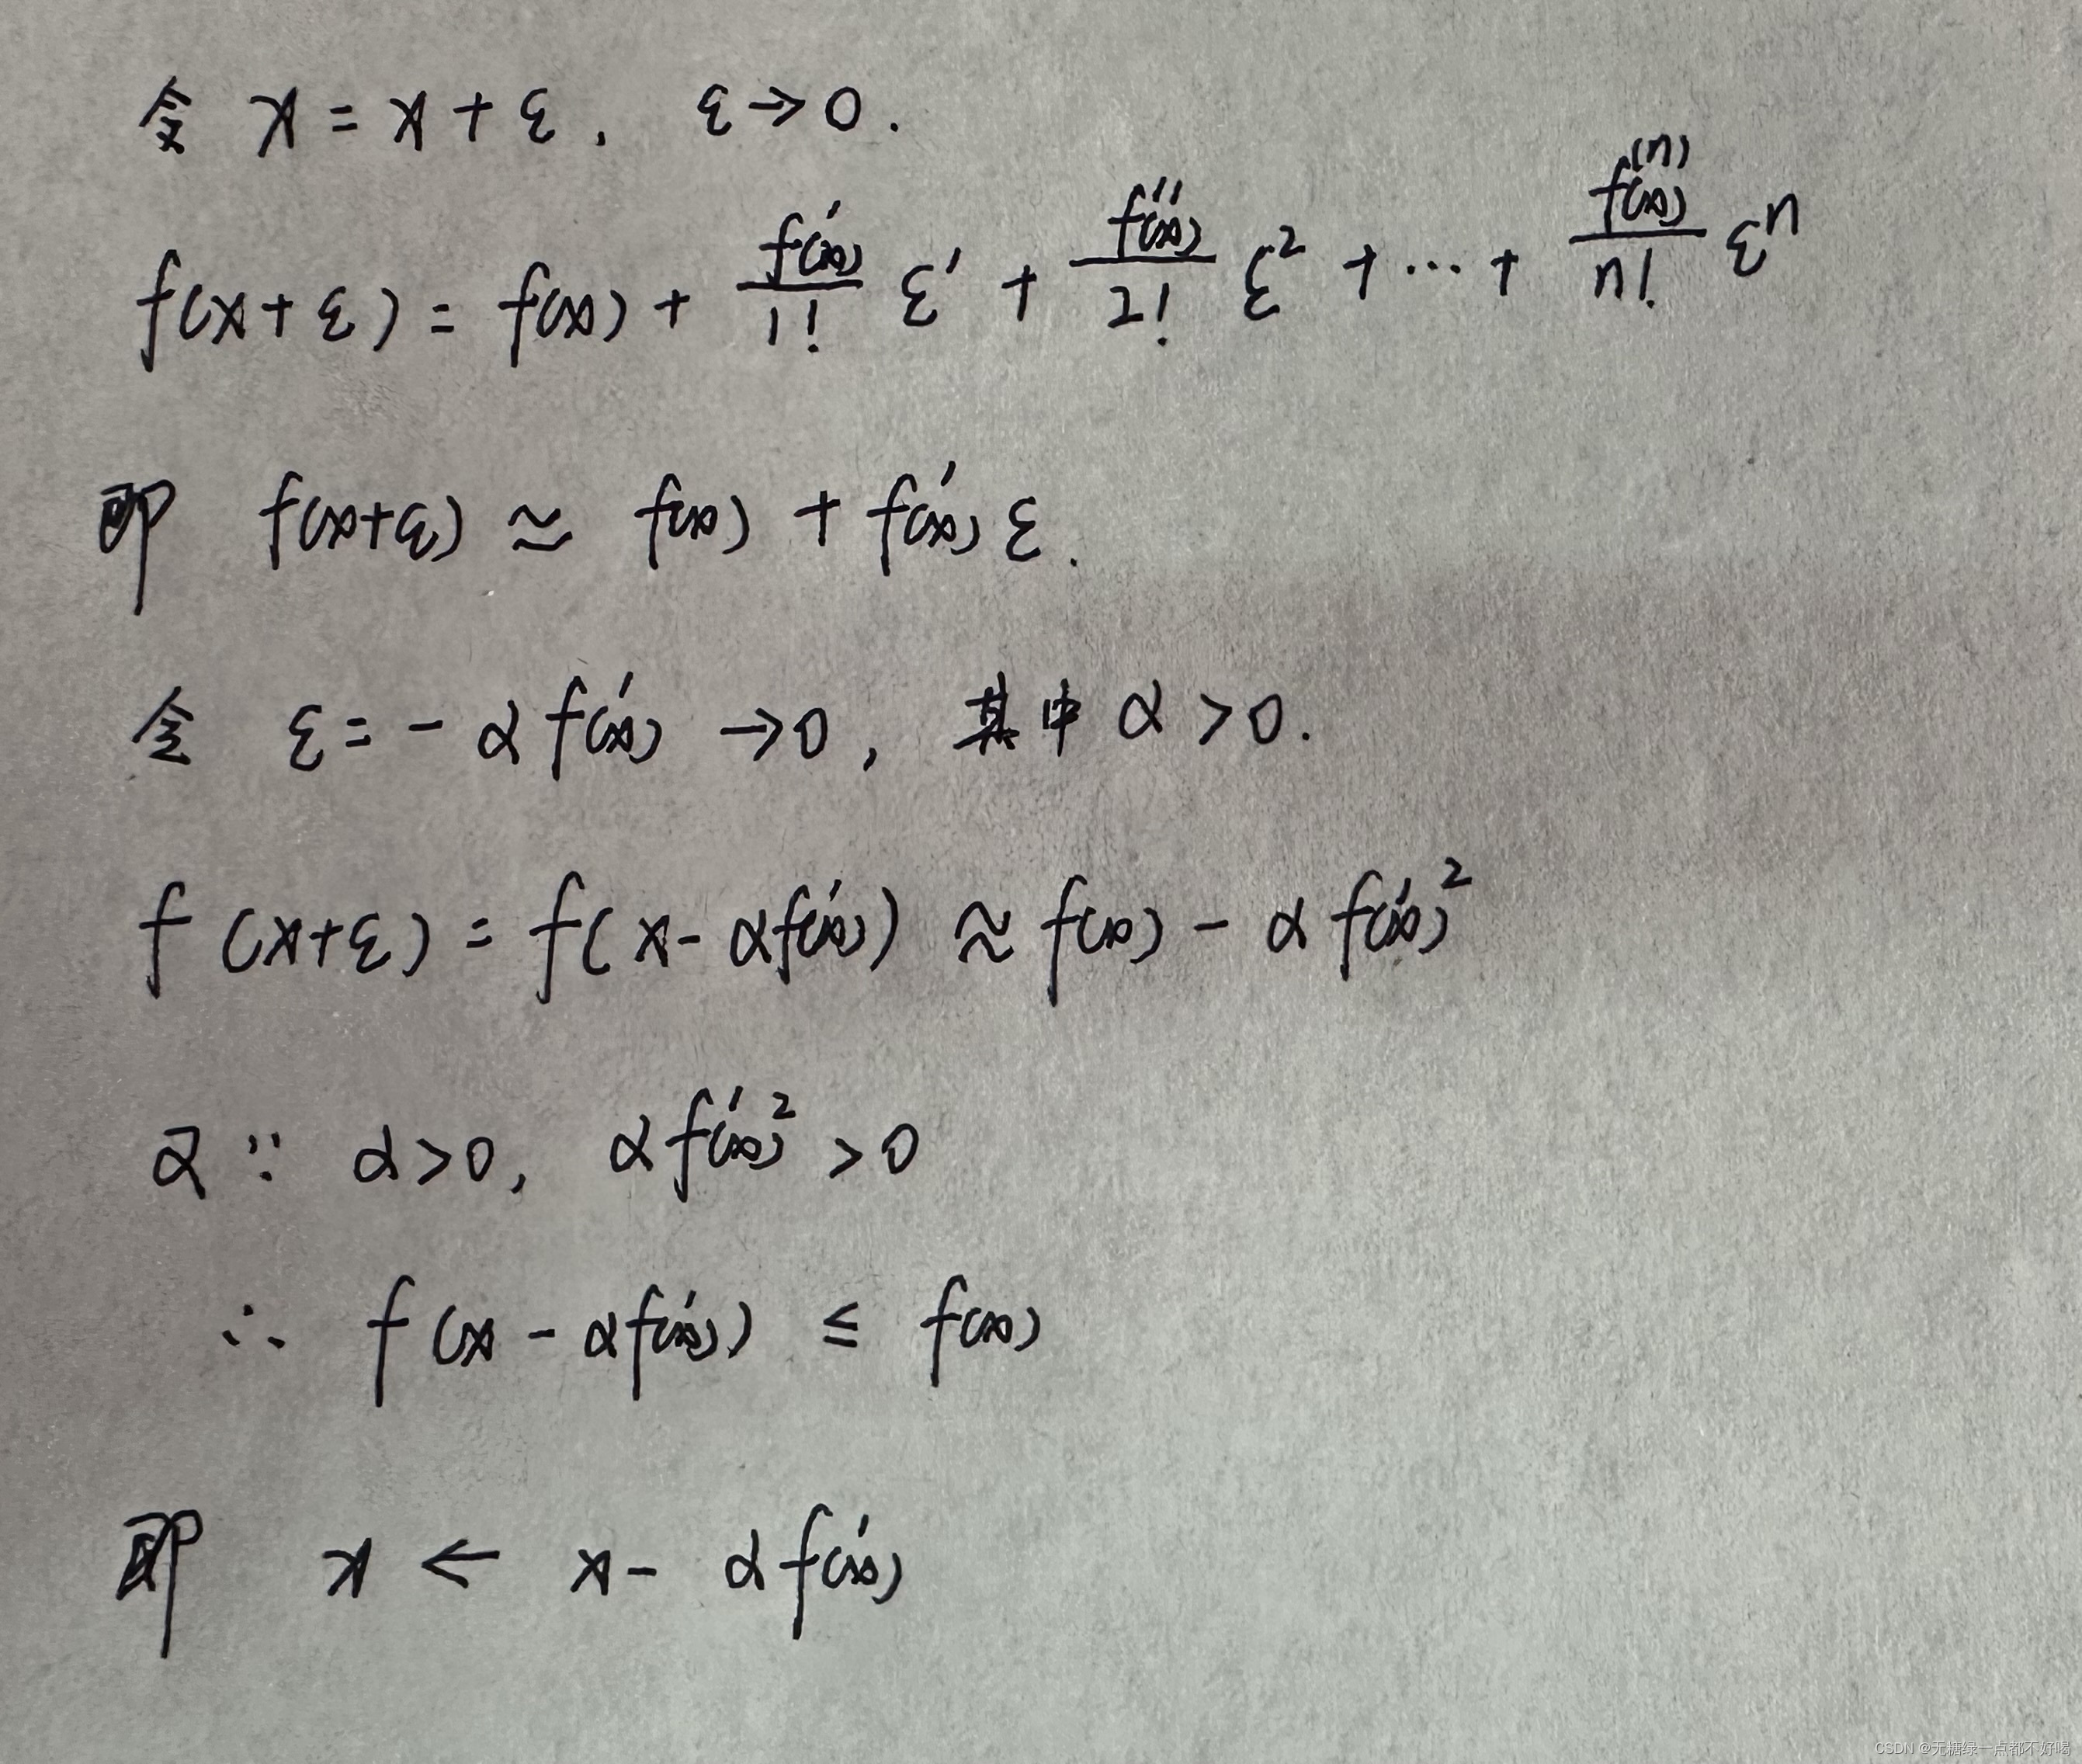 令 x = x + ε, ε → 0.
f(x+ε) = f(x) + f'(x)/1! ε' + f''(x)/2! ε² + ... + f⁽ⁿ⁾(x)/n! εⁿ
即 f(x+ε) ≈ f(x) + f'(x) ε.
令 ε = - α f'(x) → 0, 其中 α > 0.
f (x+ε) = f( x - αf'(x)) ≈ f(x) - α f'(x)²
又 ∵ α>0, αf'(x)² > 0
∴ f (x - αf'(x)) ≤ f(x)
即 x ← x - αf'(x)
CSDN @无糖绿一点都不好喝